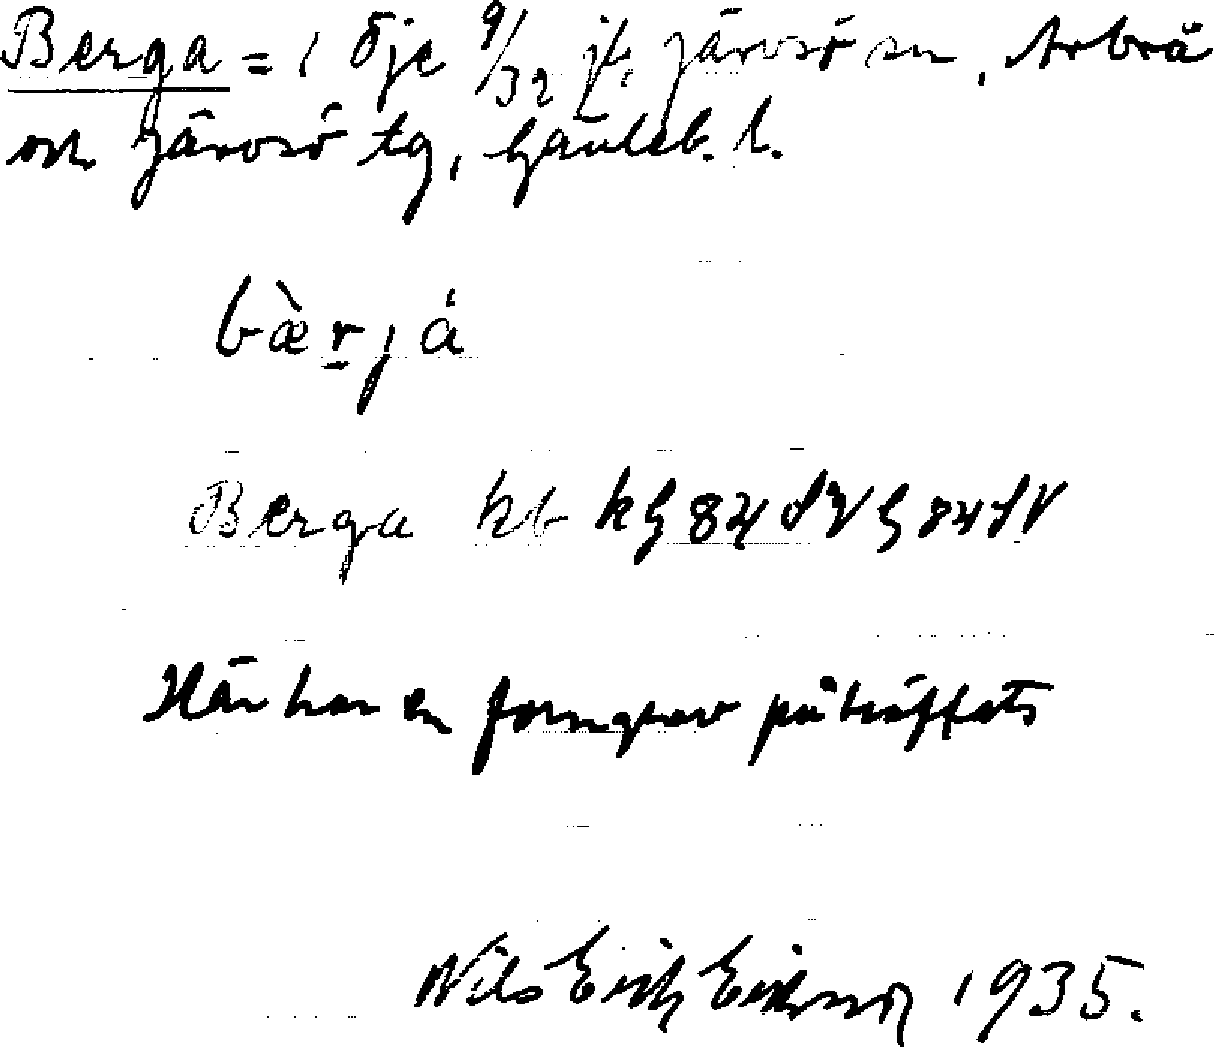 Berga = 1 Öje 9/32 jt, Järvsö sn, Arbrå
och Järvsö tg, Gävleb. l.
bæ̀r̠já
Berga kb kg 84 SV G 84 SV
Här har en forngrav påträffats
Nils Erik Eriksson 1935.